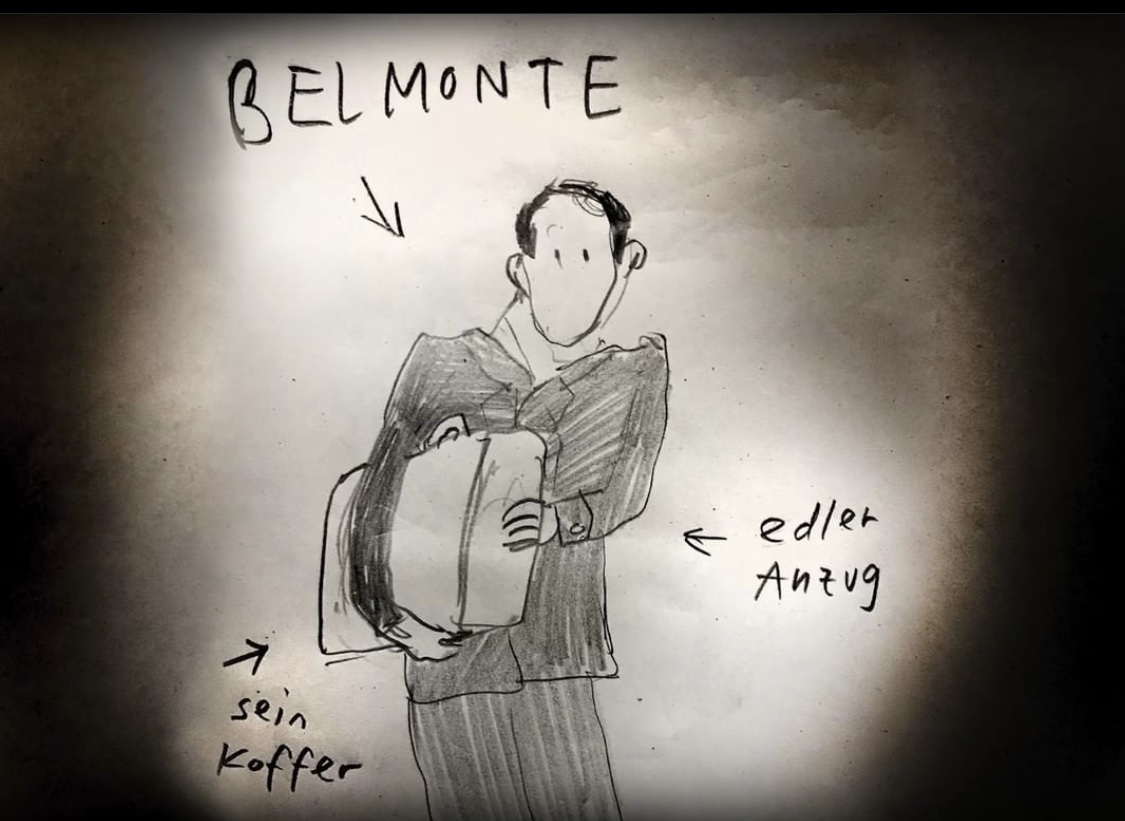 BELMONTE
edler
Anzug
sein
Koffer